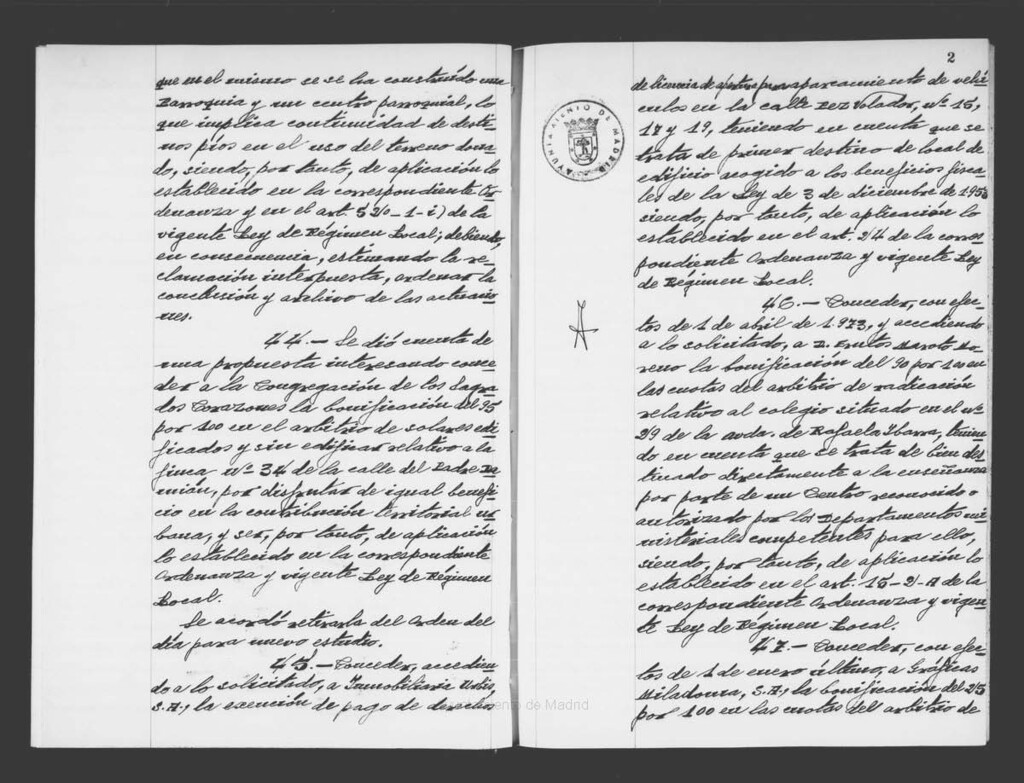 que en el mismo se se ha construído una
Parroquia y un centro parroquial, lo
que implica continuidad de desti-
nos píos en el uso del terreno dona-
do, siendo, por tanto, de aplicación lo
establecido en la correspondiente Or-
denanza y en el art. 520-1-i) de la
vigente Ley de Régimen Local; debiendo,
en consecuencia, estimando la re-
clamación interpuesta, ordenar la
conclusión y archivo de las actuacio-
nes.
44.- Se dió cuenta de
una propuesta interesando conce-
der a la Congregación de los Sagra-
dos Corazones la bonificación del 95
por 100 en el arbitrio de solares edi-
ficados y sin edificar relativo a la
finca nº 34 de la calle del Padre Da-
mián, por disfrutar de igual benefi-
cio en la contribución territorial ur-
bana, y ser, por tanto, de aplicación
lo establecido en la correspondiente
Ordenanza y vigente Ley de Régimen
Local.
Se acordó retirarla del Orden del
día para nuevo estudio.
45.- Conceder, accedien-
do a lo solicitado, a Inmobiliaria Urbis,
S.A., la exención de pago de derechos
2
de licencia de apertura para aparcamiento de vehí-
culos en la calle Pez Volador, nº 15,
17 y 19, teniendo en cuenta que se
trata de primer destino de local de
edificio acogido a los beneficios fisca-
les de la Ley de 3 de diciembre de 1953
siendo, por tanto, de aplicación lo
establecido en el art. 24 de la corres-
pondiente Ordenanza y vigente Ley
de Régimen Local.
46.- Conceder, con efec-
tos de 1 de abril de 1.973, y accediendo
a lo solicitado, a D. Frutos Maroto Mo-
reno la bonificación del 90 por 100 en
las cuotas del arbitrio de radicación
relativo al colegio situado en el nº
29 de la avda. de Rafaela Ybarra, tenien-
do en cuenta que se trata de bien des-
tinado directamente a la enseñanza
por parte de un Centro reconocido o
autorizado por los Departamentos mi-
nisteriales competentes para ello,
siendo, por tanto, de aplicación lo
establecido en el art. 15-2-A de la
correspondiente Ordenanza y vigen-
te Ley de Régimen Local.
47.- Conceder, con efec-
tos de 1 de enero último, a Gráficas
Miladonsa, S.A., la bonificación del 25
por 100 en las cuotas del arbitrio de
AYUNTAMIENTO DE MADRID
Ayuntamiento de Madrid